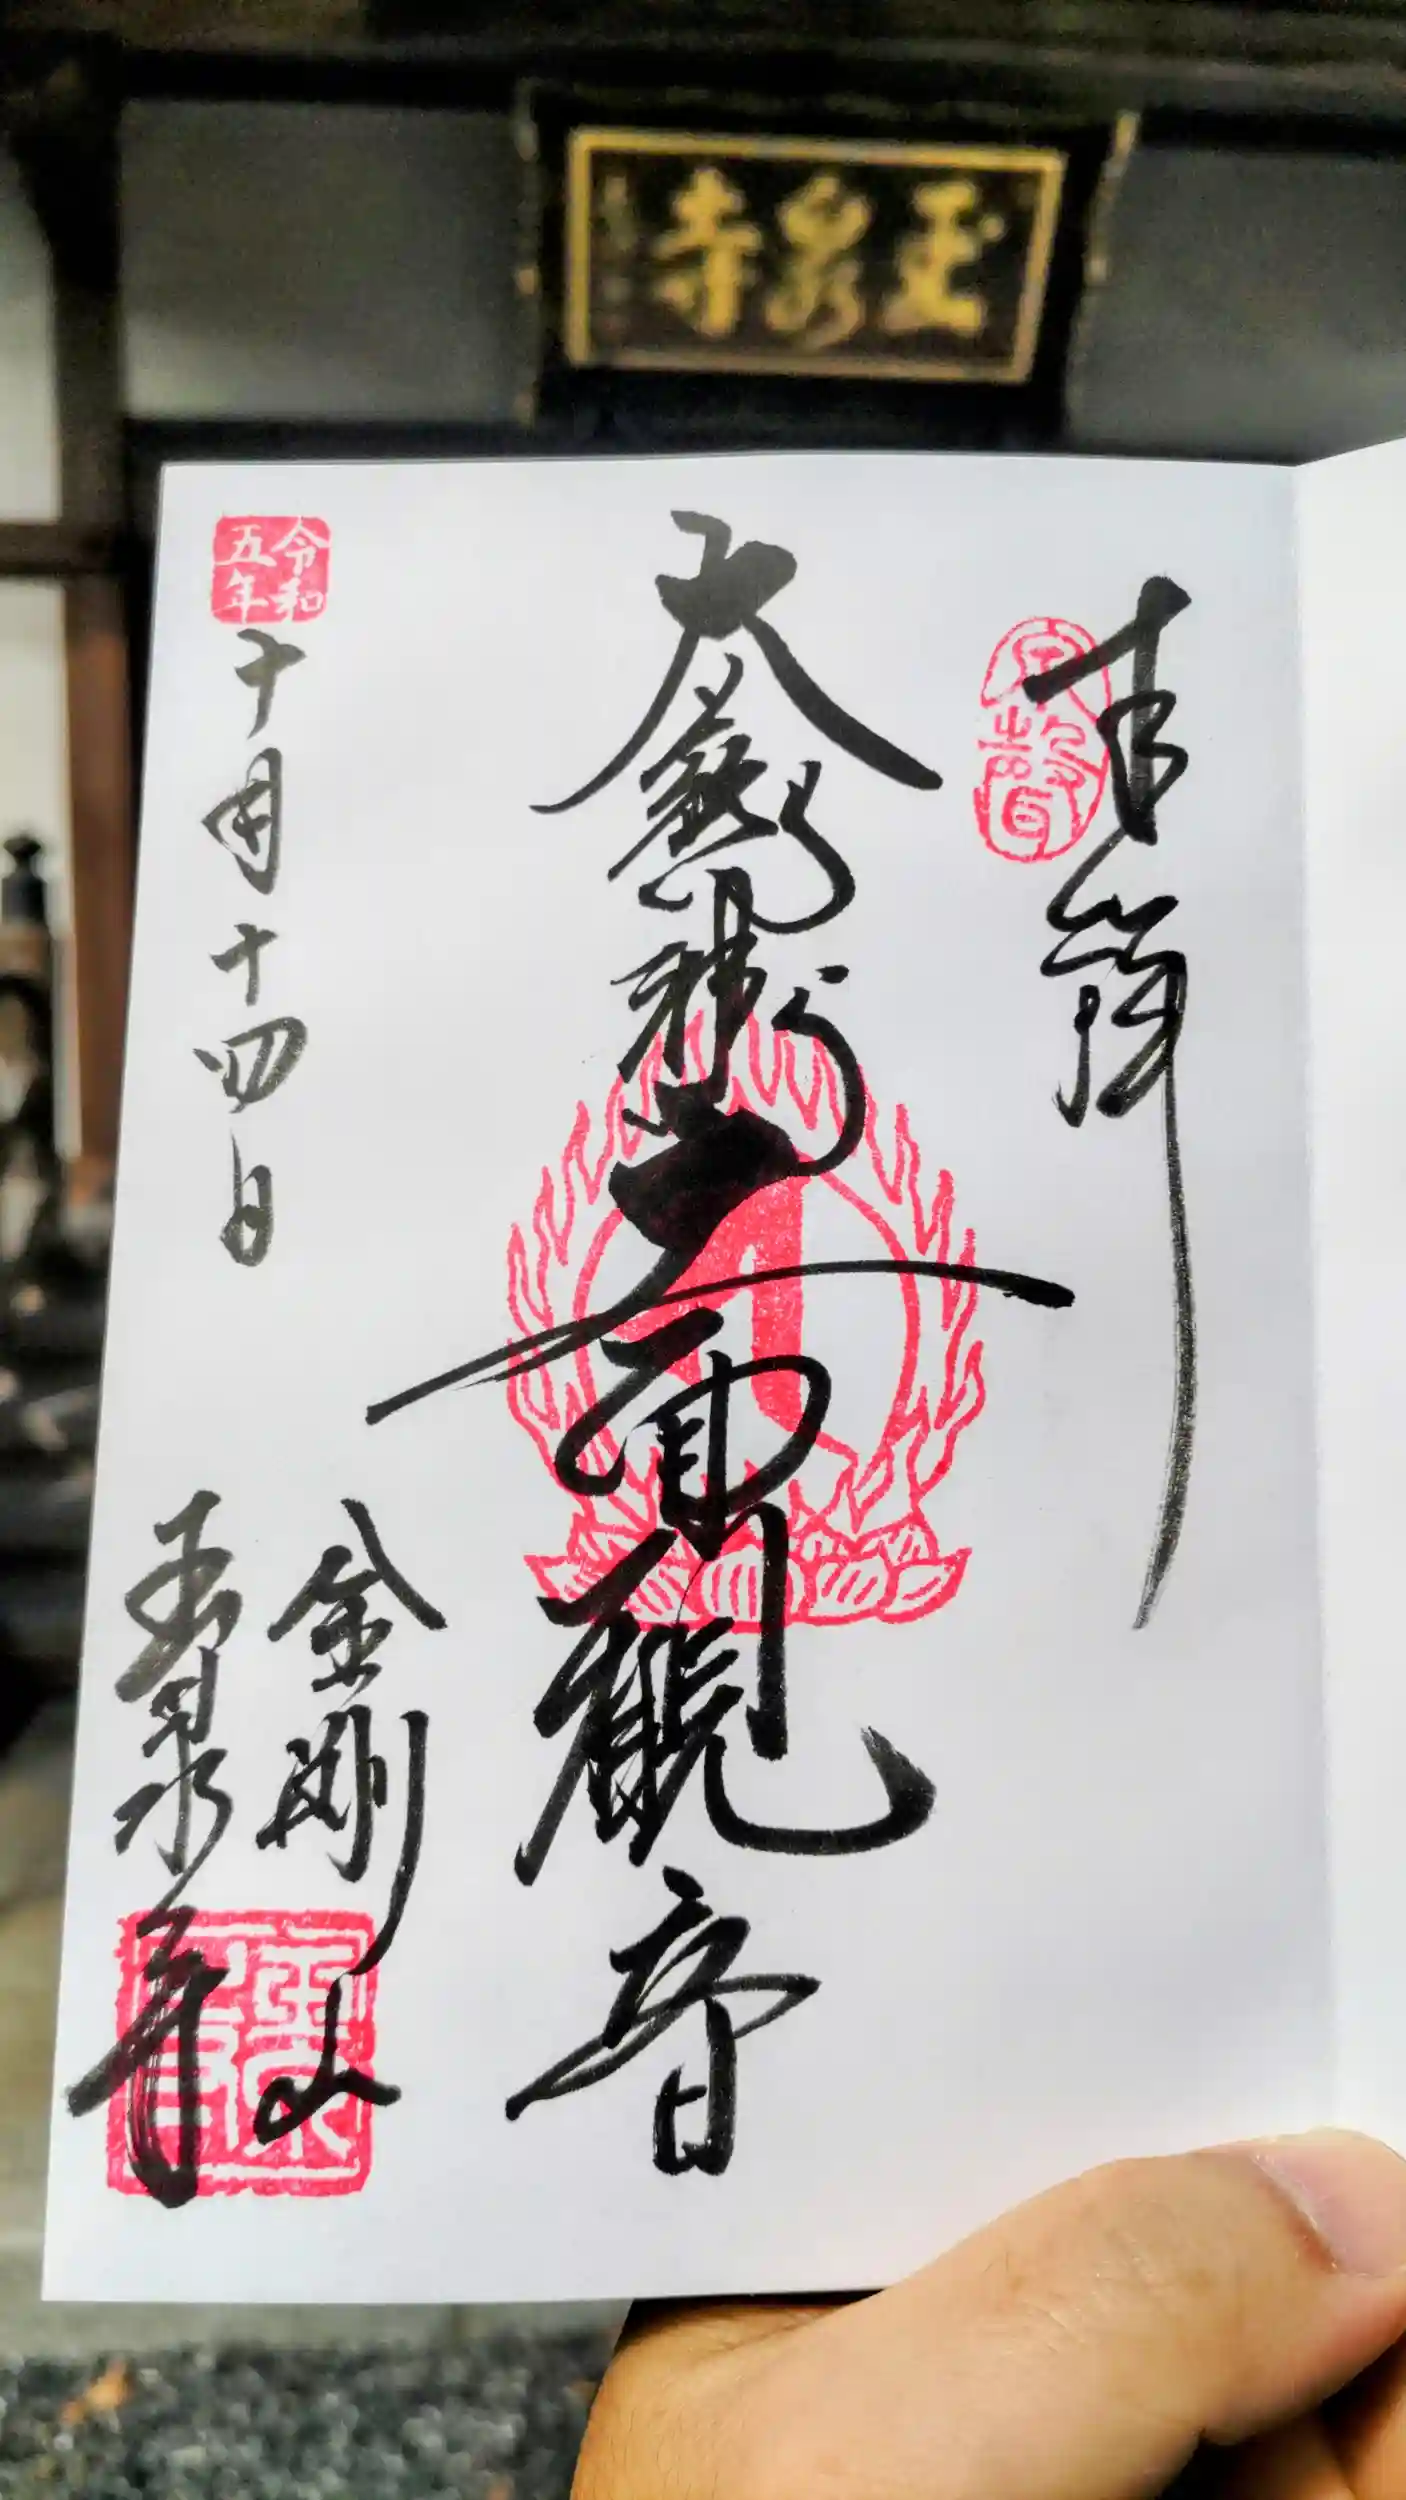 玉泉寺
奉拝
大 十一面観音
令和
五年
十月十四日
金剛山
玉泉寺